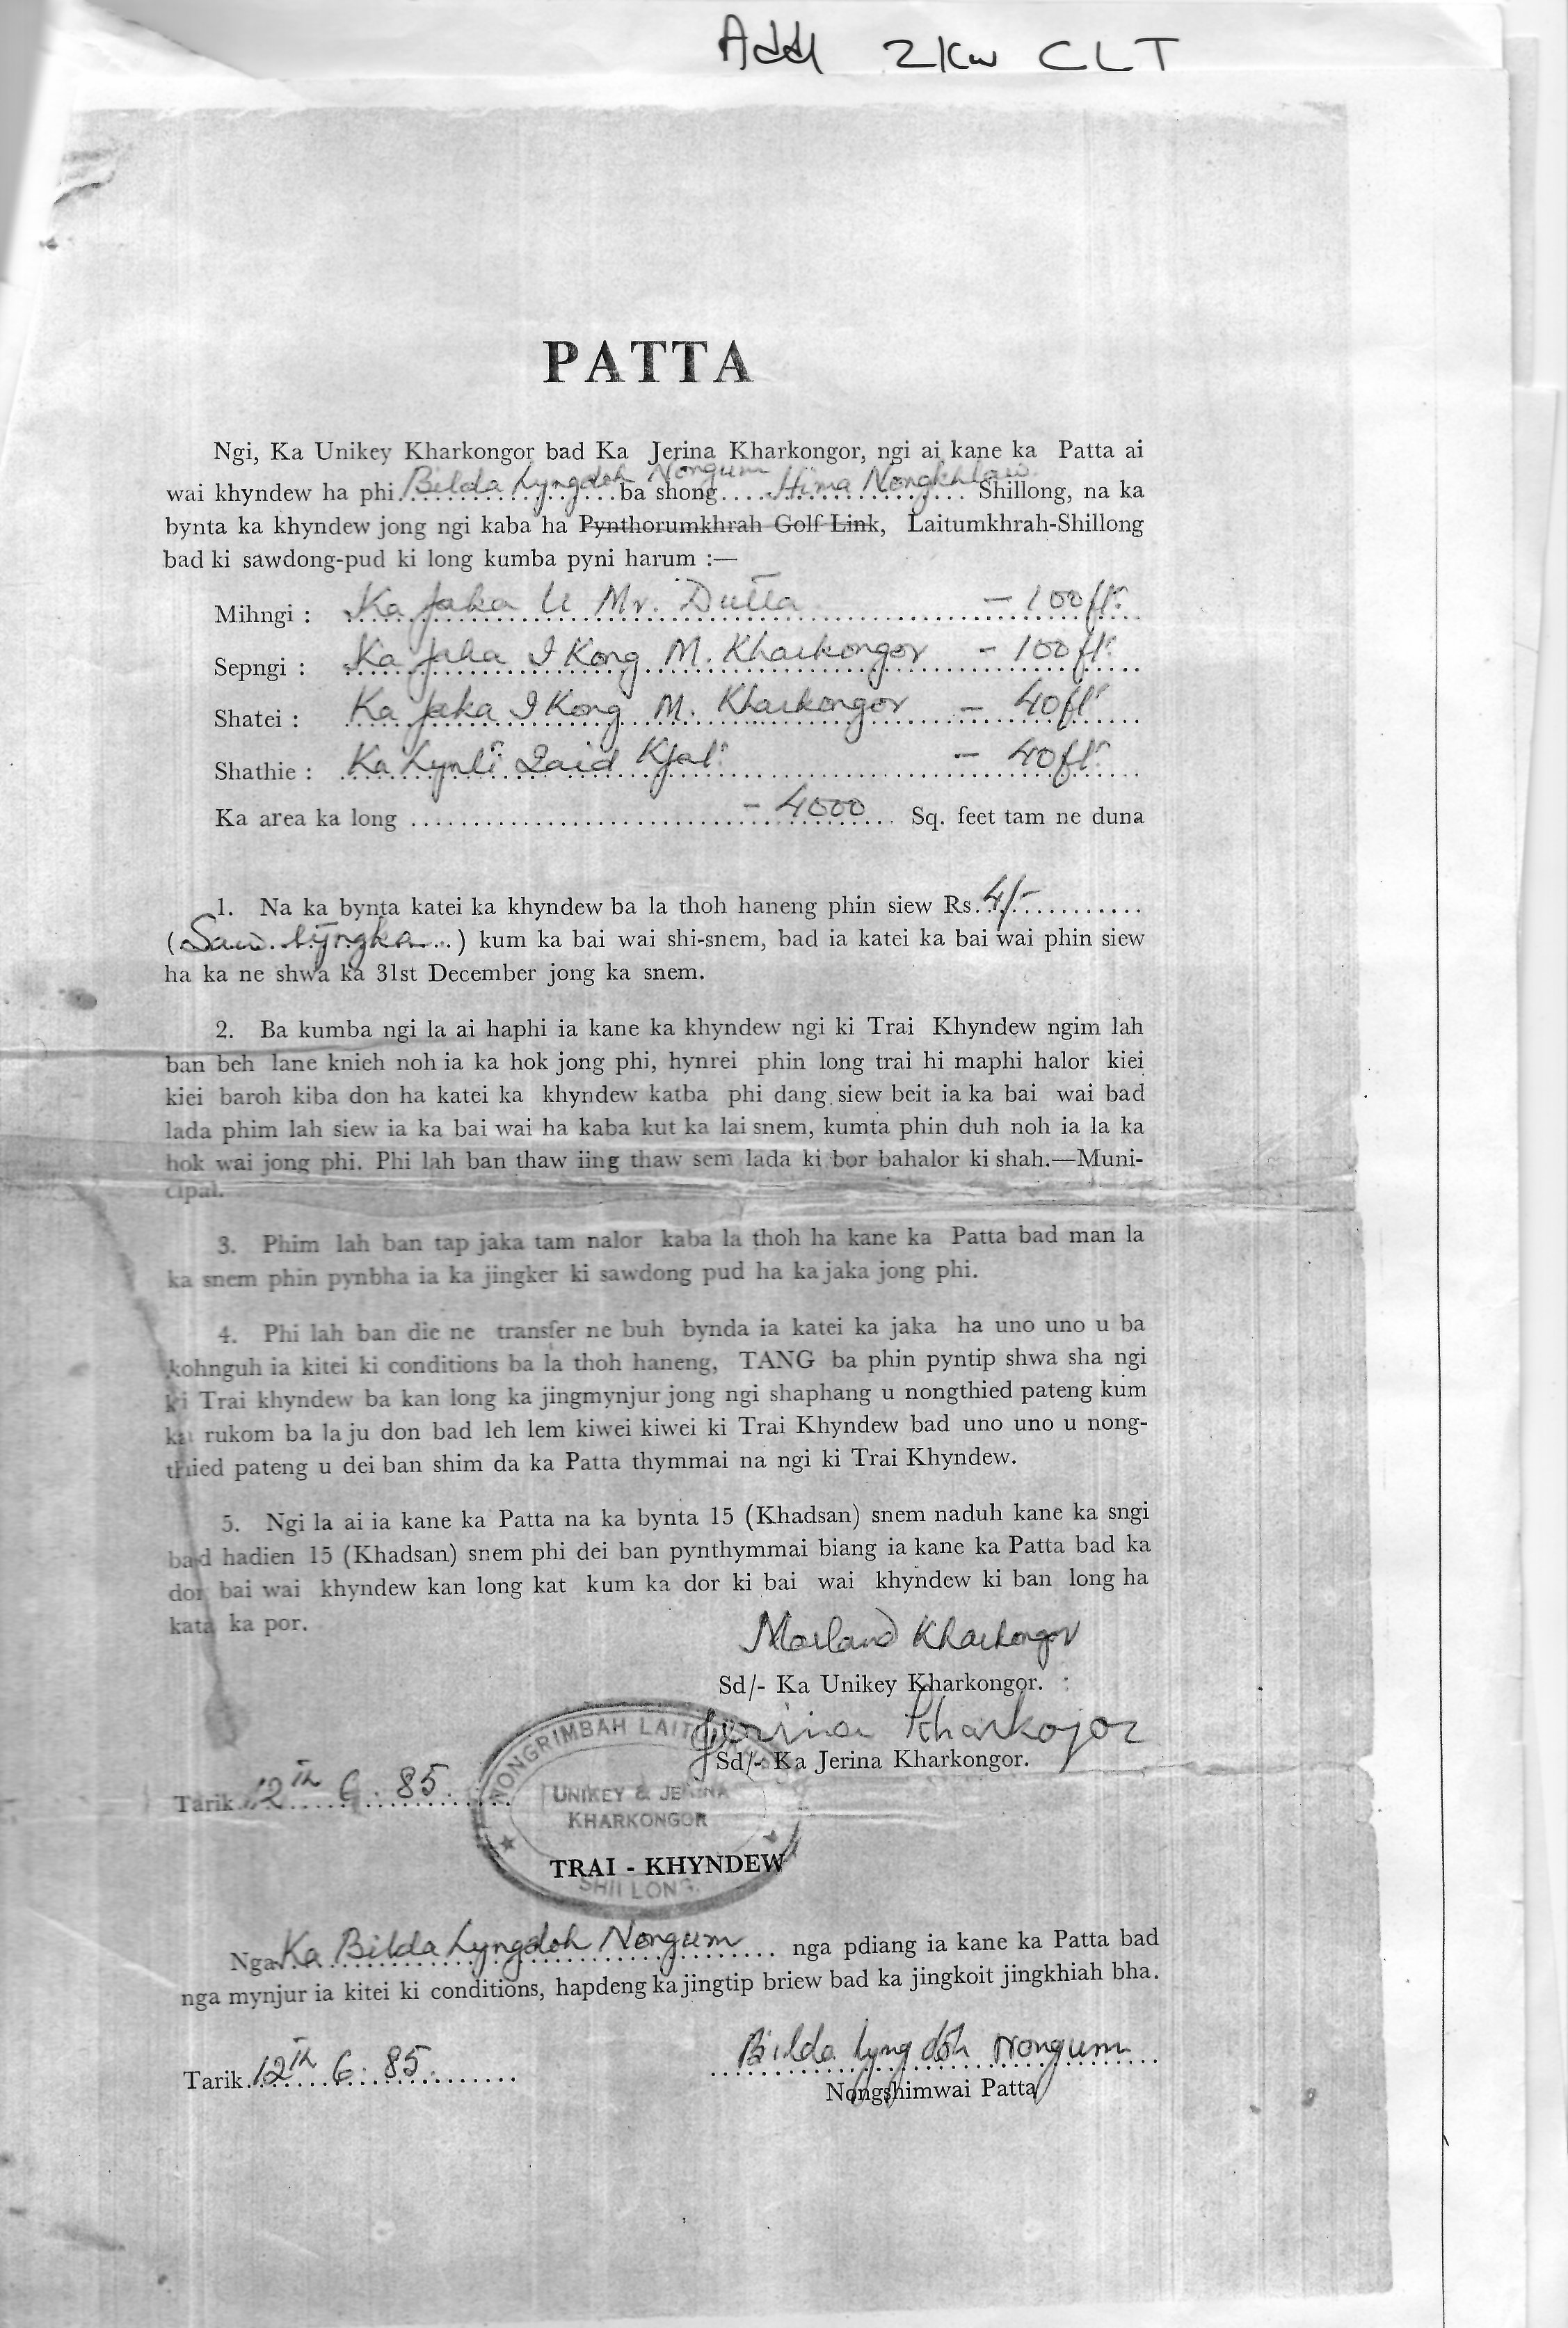 Add 2Kw CLT
PATTA
Ngi, Ka Unikey Kharkongor bad Ka Jerina Kharkongor, ngi ai kane ka Patta ai
wai khyndew ha phi Bilda Lyngdoh Nongum ba shong.... Hima Nongkhlaw Shillong, na ka
bynta ka khyndew jong ngi kaba ha Pynthorumkhrah Golf Link, Laitumkhrah-Shillong
bad ki sawdong-pud ki long kumba pyni harum :—
Mihngi : Ka Jaka U Mr. Dutta - 100ft.
Sepngi : Ka Jaka I Kong M. Kharkongor - 100ft.
Shatei : Ka Jaka I Kong M. Kharkongor - 40ft
Shathie : Ka Lynti Iaid Kjat - 40ft.
Ka area ka long - 4000 Sq. feet tam ne duna
1. Na ka bynta katei ka khyndew ba la thoh haneng phin siew Rs. 4/-
(Saw tyngka...) kum ka bai wai shi-snem, bad ia katei ka bai wai phin siew
ha ka ne shwa ka 31st December jong ka snem.
2. Ba kumba ngi la ai haphi ia kane ka khyndew ngi ki Trai Khyndew ngim lah
ban beh lane knieh noh ia ka hok jong phi, hynrei phin long trai hi maphi halor kiei
kiei baroh kiba don ha katei ka khyndew katba phi dang siew beit ia ka bai wai bad
lada phim lah siew ia ka bai wai ha kaba kut ka lai snem, kumta phin duh noh ia la ka
hok wai jong phi. Phi lah ban thaw iing thaw sem lada ki bor bahalor ki shah.—Muni-
cipal.
3. Phim lah ban tap jaka tam nalor kaba la thoh ha kane ka Patta bad man la
ka snem phin pynbha ia ka jingker ki sawdong pud ha ka jaka jong phi.
4. Phi lah ban die ne transfer ne buh bynda ia katei ka jaka ha uno uno u ba
kohnguh ia kitei ki conditions ba la thoh haneng, TANG ba phin pyntip shwa sha ngi
ki Trai khyndew ba kan long ka jingmynjur jong ngi shaphang u nongthied pateng kum
ka rukom ba la ju don bad leh lem kiwei kiwei ki Trai Khyndew bad uno uno u nong-
thied pateng u dei ban shim da ka Patta thymmai na ngi ki Trai Khyndew.
5. Ngi la ai ia kane ka Patta na ka bynta 15 (Khadsan) snem naduh kane ka sngi
bad hadien 15 (Khadsan) snem phi dei ban pynthymmai biang ia kane ka Patta bad ka
dor bai wai khyndew kan long kat kum ka dor ki bai wai khyndew ki ban long ha
kata ka por.
Kharkongor
Sd/- Ka Unikey Kharkongor.
Jerina Kharkogor
Sd/- Ka Jerina Kharkongor.
Tarik 12th 6. 85.
NONGRIMBAH
UNIKEY & JERINA
KHARKONGOR
TRAI - KHYNDEW
SHILLONG.
Nga Ka Bilda Lyngdoh Nongum nga pdiang ia kane ka Patta bad
nga mynjur ia kitei ki conditions, hapdeng ka jingtip briew bad ka jingkoit jingkhiah bha.
Tarik 12th 6. 85.
Bilda Lyngdoh Nongum
Nongshimwai Patta